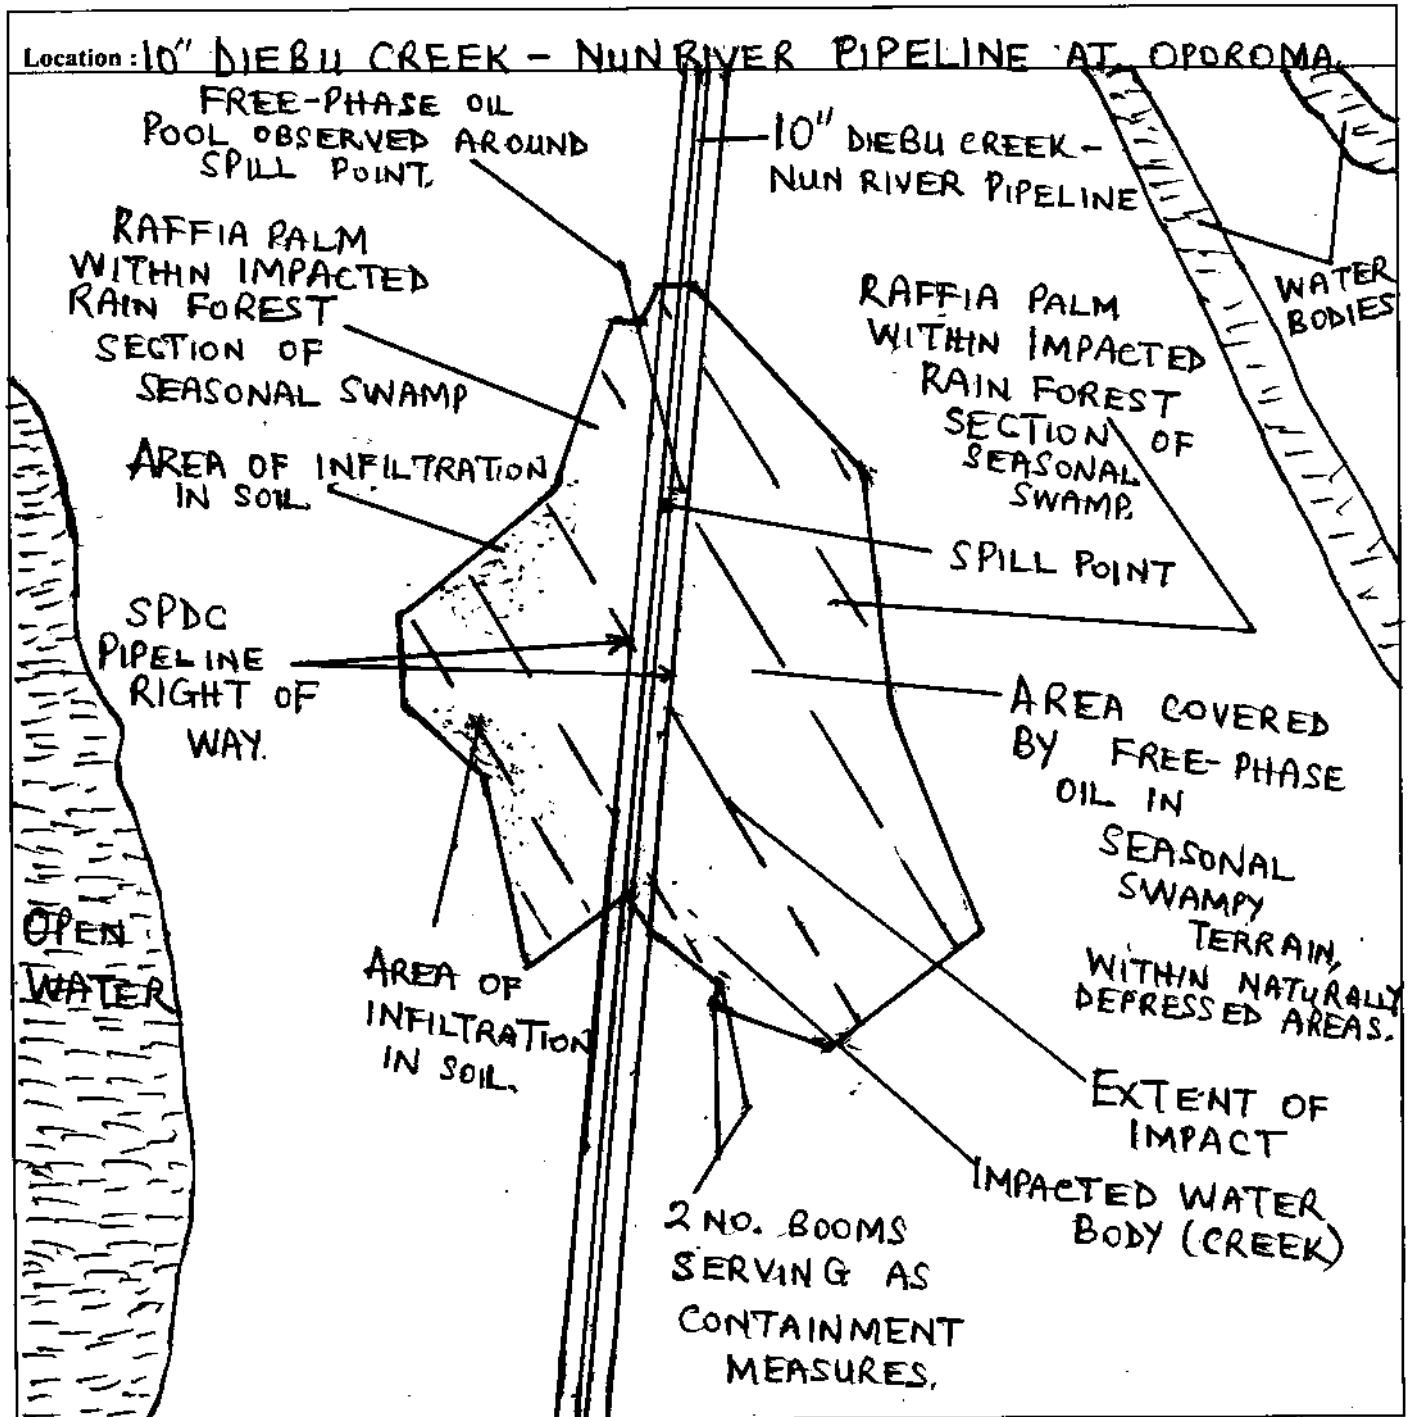 Location : 10" DIEBU CREEK - NUN RIVER PIPELINE AT OPOROMA.
FREE-PHASE OIL
POOL OBSERVED AROUND
SPILL POINT.
10" DIEBU CREEK -
NUN RIVER PIPELINE
RAFFIA PALM
WITHIN IMPACTED
RAIN FOREST
SECTION OF
SEASONAL SWAMP
WATER
BODIES
RAFFIA PALM
WITHIN IMPACTED
RAIN FOREST
SECTION OF
SEASONAL
SWAMP.
AREA OF INFILTRATION
IN SOIL.
SPILL POINT
SPDC
PIPELINE
RIGHT OF
WAY.
AREA COVERED
BY FREE-PHASE
OIL IN
SEASONAL
SWAMPY
TERRAIN,
WITHIN NATURALLY
DEPRESSED AREAS.
OPEN
WATER
AREA OF
INFILTRATION
IN SOIL.
EXTENT OF
IMPACT
IMPACTED WATER
BODY (CREEK)
2 NO. BOOMS
SERVING AS
CONTAINMENT
MEASURES.